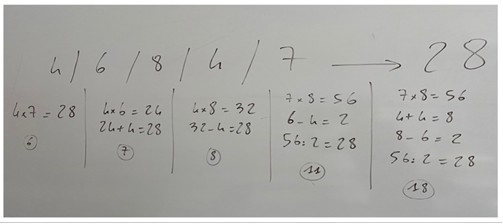 4 / 6 / 8 / 4 / 7 → 28
4x7 = 28
6
4x6 = 24
24+4=28
7
4x8 = 32
32-4=28
8
7x8=56
6-4=2
56:2=28
11
7x8=56
4+4=8
8-6=2
56:2=28
18